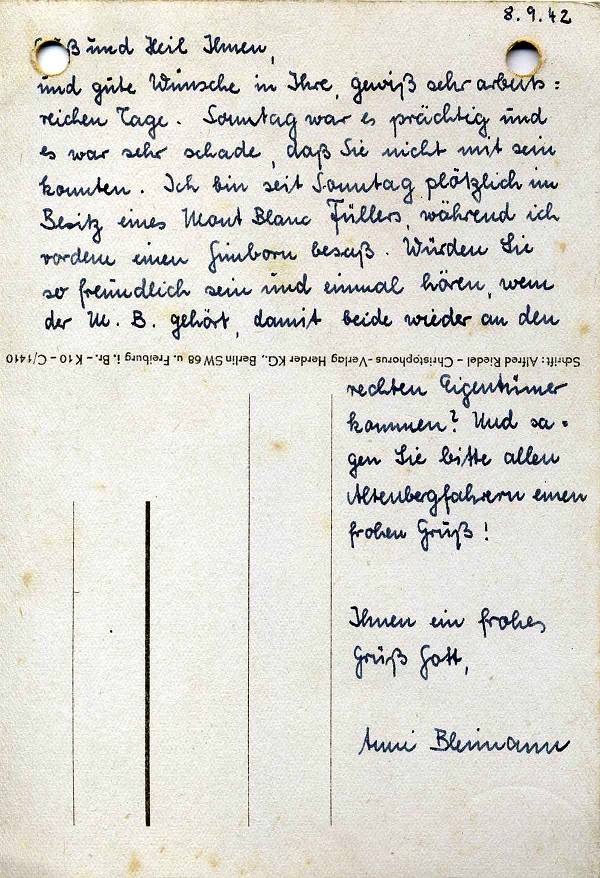 8.9.42
Gruß und Heil Ihnen,
und gute Wünsche in Ihre, gewiß sehr arbeits=
reichen Tage. Sonntag war es prächtig und
es war sehr schade, daß Sie nicht mit sein
konnten. Ich bin seit Sonntag plötzlich im
Besitz eines Mont Blanc Füllers, während ich
vordem einen Gimborn besaß. Würden Sie
so freundlich sein und einmal hören, wem
der M. B. gehört, damit beide wieder an den
Schrift: Alfred Riedel – Christophorus-Verlag Herder KG., Berlin SW 68 u. Freiburg i. Br. – K 10 – C/1410
rechten Eigentümer
kommen? Und sa=
gen Sie bitte allen
Altenbergfahrern einen
frohen Gruß!
Ihnen ein frohes
Grüß Gott,
Anni Bleimann